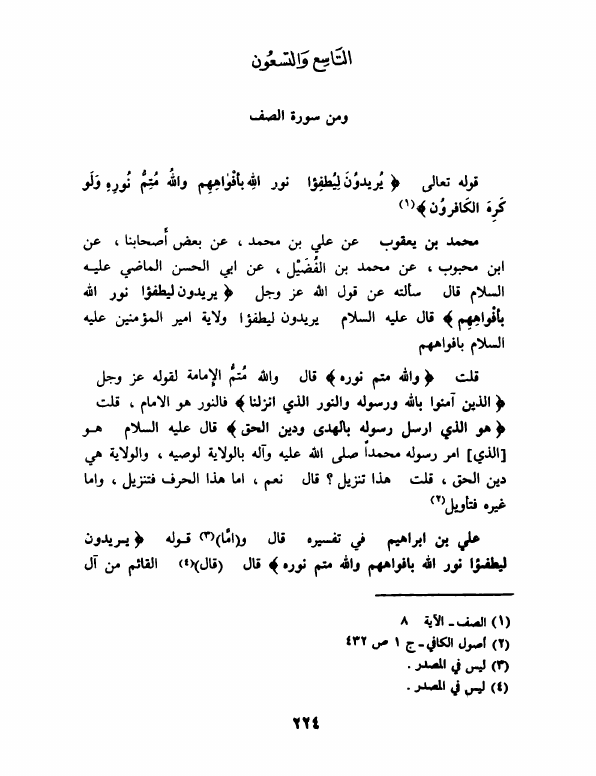 التَّاسِع وَالتسعُون
ومن سورة الصف
قوله تعالى ﴿ يُريدُونَ لِيُطفِؤا نور اللهِ بأَفْوٰاهِهِم واللهُ مُتِمُّ نُورِهِ وَلَو
كَرِهَ الكَافِرُون ﴾(١)
محمد بن يعقوب عن علي بن محمد ، عن بعض أَصحابنا ، عن
ابن محبوب ، عن محمد بن الفُضَيْل ، عن ابي الحسن الماضي عليه
السلام قال سألته عن قول الله عز وجل ﴿ يريدون ليطفؤا نور الله
بأَفْواهِهِم ﴾ قال عليه السلام يريدون ليطفؤا ولاية امير المؤمنين عليه
السلام بافواههم
قلت ﴿ والله متم نوره ﴾ قال والله مُتمُّ الإمامة لقوله عز وجل
﴿ الذين آمنوا بالله ورسوله والنور الذي انزلنا ﴾ فالنور هو الامام ، قلت
﴿ هو الذي ارسل رسوله بالهدى ودين الحق ﴾ قال عليه السلام هو
[الذي] امر رسوله محمداً صلى الله عليه وآله بالولاية لوصيه ، والولاية هي
دين الحق ، قلت هذا تنزيل ؟ قال نعم ، اما هذا الحرف فتنزيل ، واما
غيره فتأويل(٢)
علي بن ابراهيم في تفسيره قال و(امّا)(٣) قوله ﴿ يريدون
ليطفؤا نور الله بافواههم والله متم نوره ﴾ قال (قال)(٤) القائم من آل
(١) الصف ـ الآية ٨
(٢) أصول الكافي ـ ج ١ ص ٤٣٢
(٣) ليس في المصدر .
(٤) ليس في المصدر .
٢٢٤